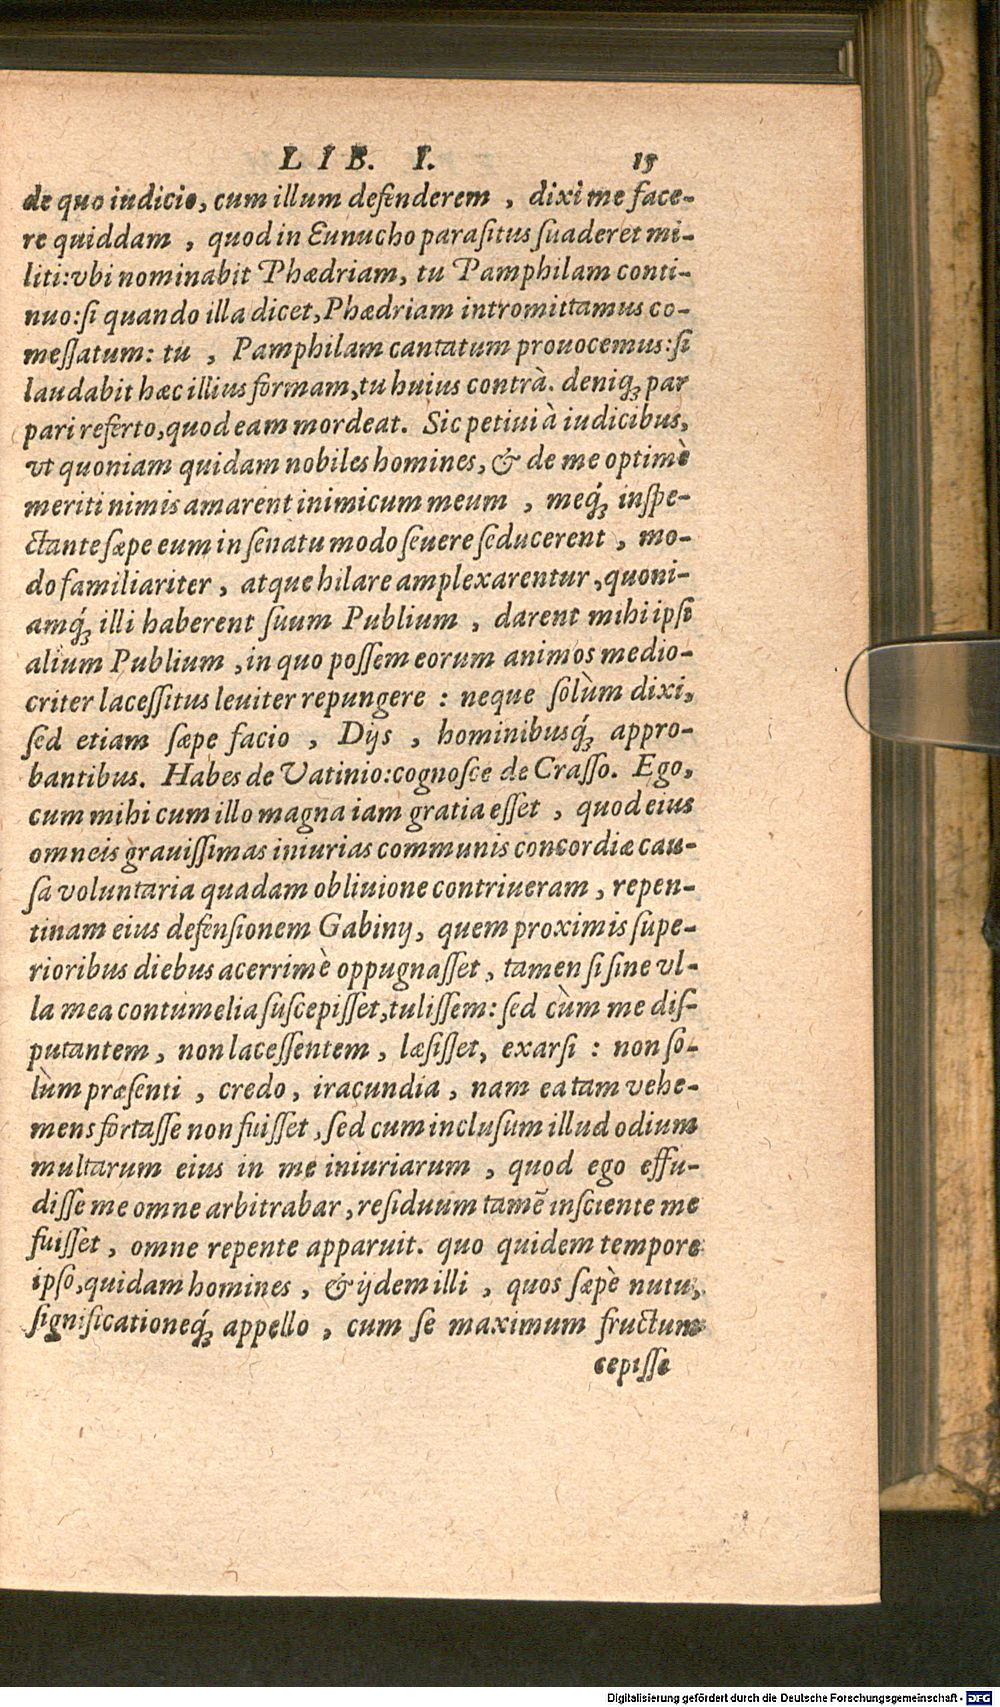 LIB. I. 15
de quo iudicio, cum illum defenderem , dixi me face-
re quiddam , quod in Eunucho parasitus suaderet mi-
liti: vbi nominabit Phædriam, tu Pamphilam conti-
nuo: si quando illa dicet, Phædriam intromittamus co-
messatum: tu , Pamphilam cantatum prouocemus: si
laudabit hæc illius formam, tu huius contrà. deniq; par
pari referto, quod eam mordeat. Sic petiui à iudicibus,
vt quoniam quidam nobiles homines, & de me optimè
meriti nimis amarent inimicum meum , meq́; inspe-
ctante sæpe eum in senatu modo seuere seducerent , mo-
do familiariter , atque hilare amplexarentur , quoni-
amq́; illi haberent suum Publium , darent mihi ipsi
alium Publium , in quo possem eorum animos medio-
criter lacessitus leuiter repungere : neque solùm dixi,
sed etiam sæpe facio , Dijs , hominibusq́; appro-
bantibus. Habes de Vatinio: cognosce de Crasso. Ego,
cum mihi cum illo magna iam gratia esset , quod eius
omneis grauissimas iniurias communis concordiæ cau-
sa voluntaria quadam obliuione contriueram , repen-
tinam eius defensionem Gabinij, quem proximis supe-
rioribus diebus acerrimè oppugnasset , tamen si sine vl-
la mea contumelia suscepisset, tulissem: sed cùm me dis-
putantem , non lacessentem , læsisset, exarsi : non so-
lùm præsenti , credo , iracundia , nam ea tam vehe-
mens fortasse non fuisset , sed cum inclusum illud odium
multarum eius in me iniuriarum , quod ego effu-
disse me omne arbitrabar , residuum tamẽ insciente me
fuisset , omne repente apparuit. quo quidem tempore
ipso, quidam homines , & ijdem illi , quos sæpè nutu,
significationeq́; appello , cum se maximum fructum
cepisse
Digitalisierung gefördert durch die Deutsche Forschungsgemeinschaft - DFG